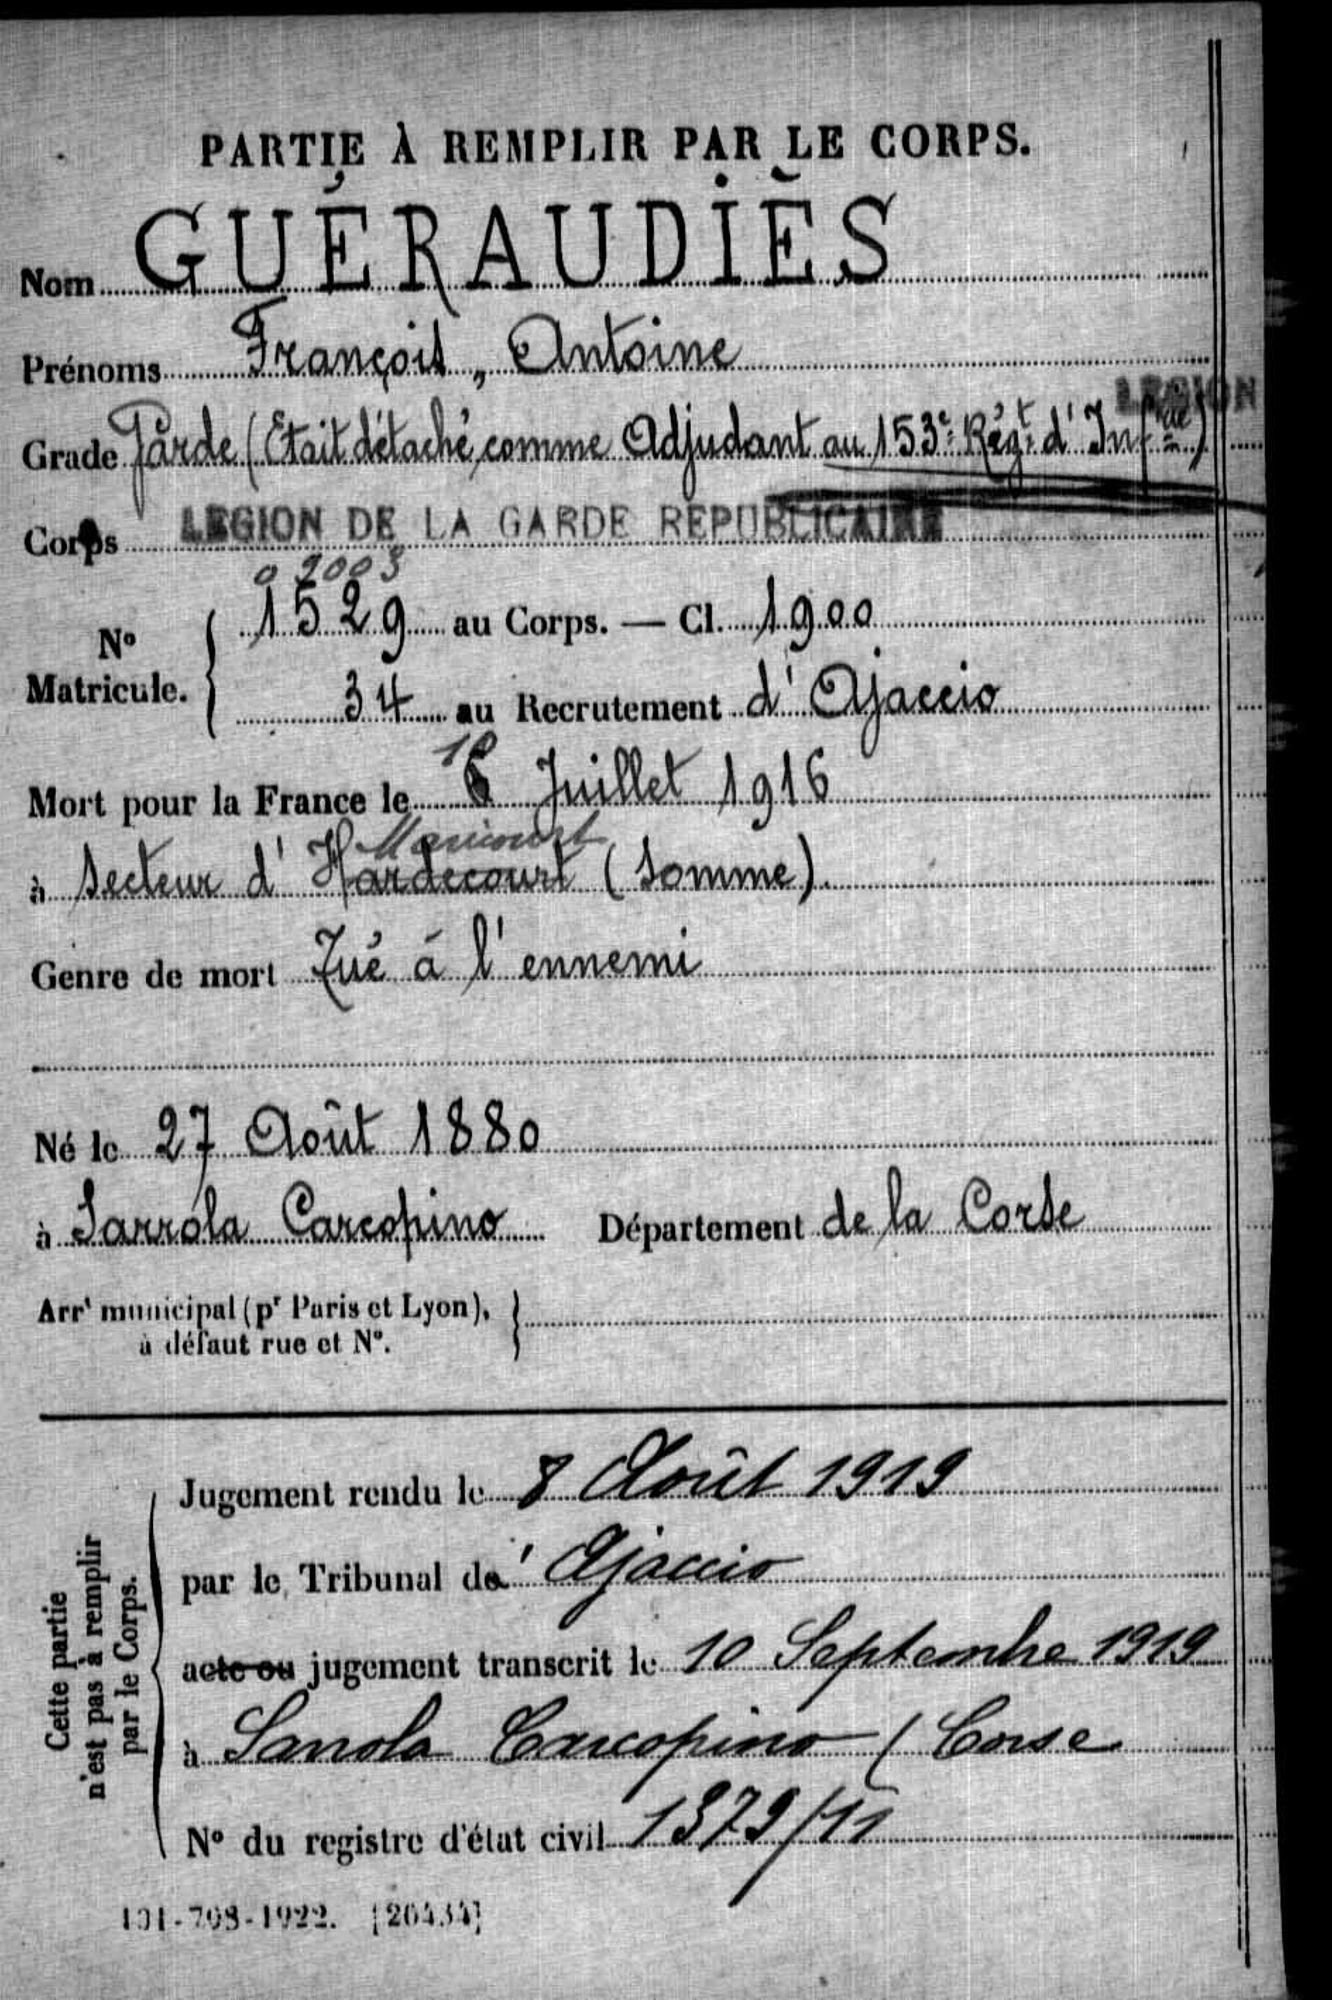 PARTIE À REMPLIR PAR LE CORPS.
Nom GUÉRAUDIÈS
Prénoms François, Antoine
LEGION
Grade Garde (Était détaché, comme Adjudant au 153e Régt d'Infrie)
Corps LEGION DE LA GARDE REPUBLICAINE
0 2003
No Matricule. { 1529 au Corps. — Cl. 1900
34 au Recrutement d'Ajaccio
10
Mort pour la France le 6 Juillet 1916
Maricourt
à Secteur d'Hardecourt (Somme).
Genre de mort Tué à l'ennemi
Né le 27 Août 1880
à Sarrola Carcopino Département de la Corse
Arrt municipal (pr Paris et Lyon),
à défaut rue et No.
Cette partie
n'est pas à remplir
par le Corps.
Jugement rendu le 8 Août 1919
par le Tribunal d' Ajaccio
acte ou jugement transcrit le 10 Septembre 1919
à Sarrola Carcopino (Corse
No du registre d'état civil 1379/11
101-708-1922. [26434]